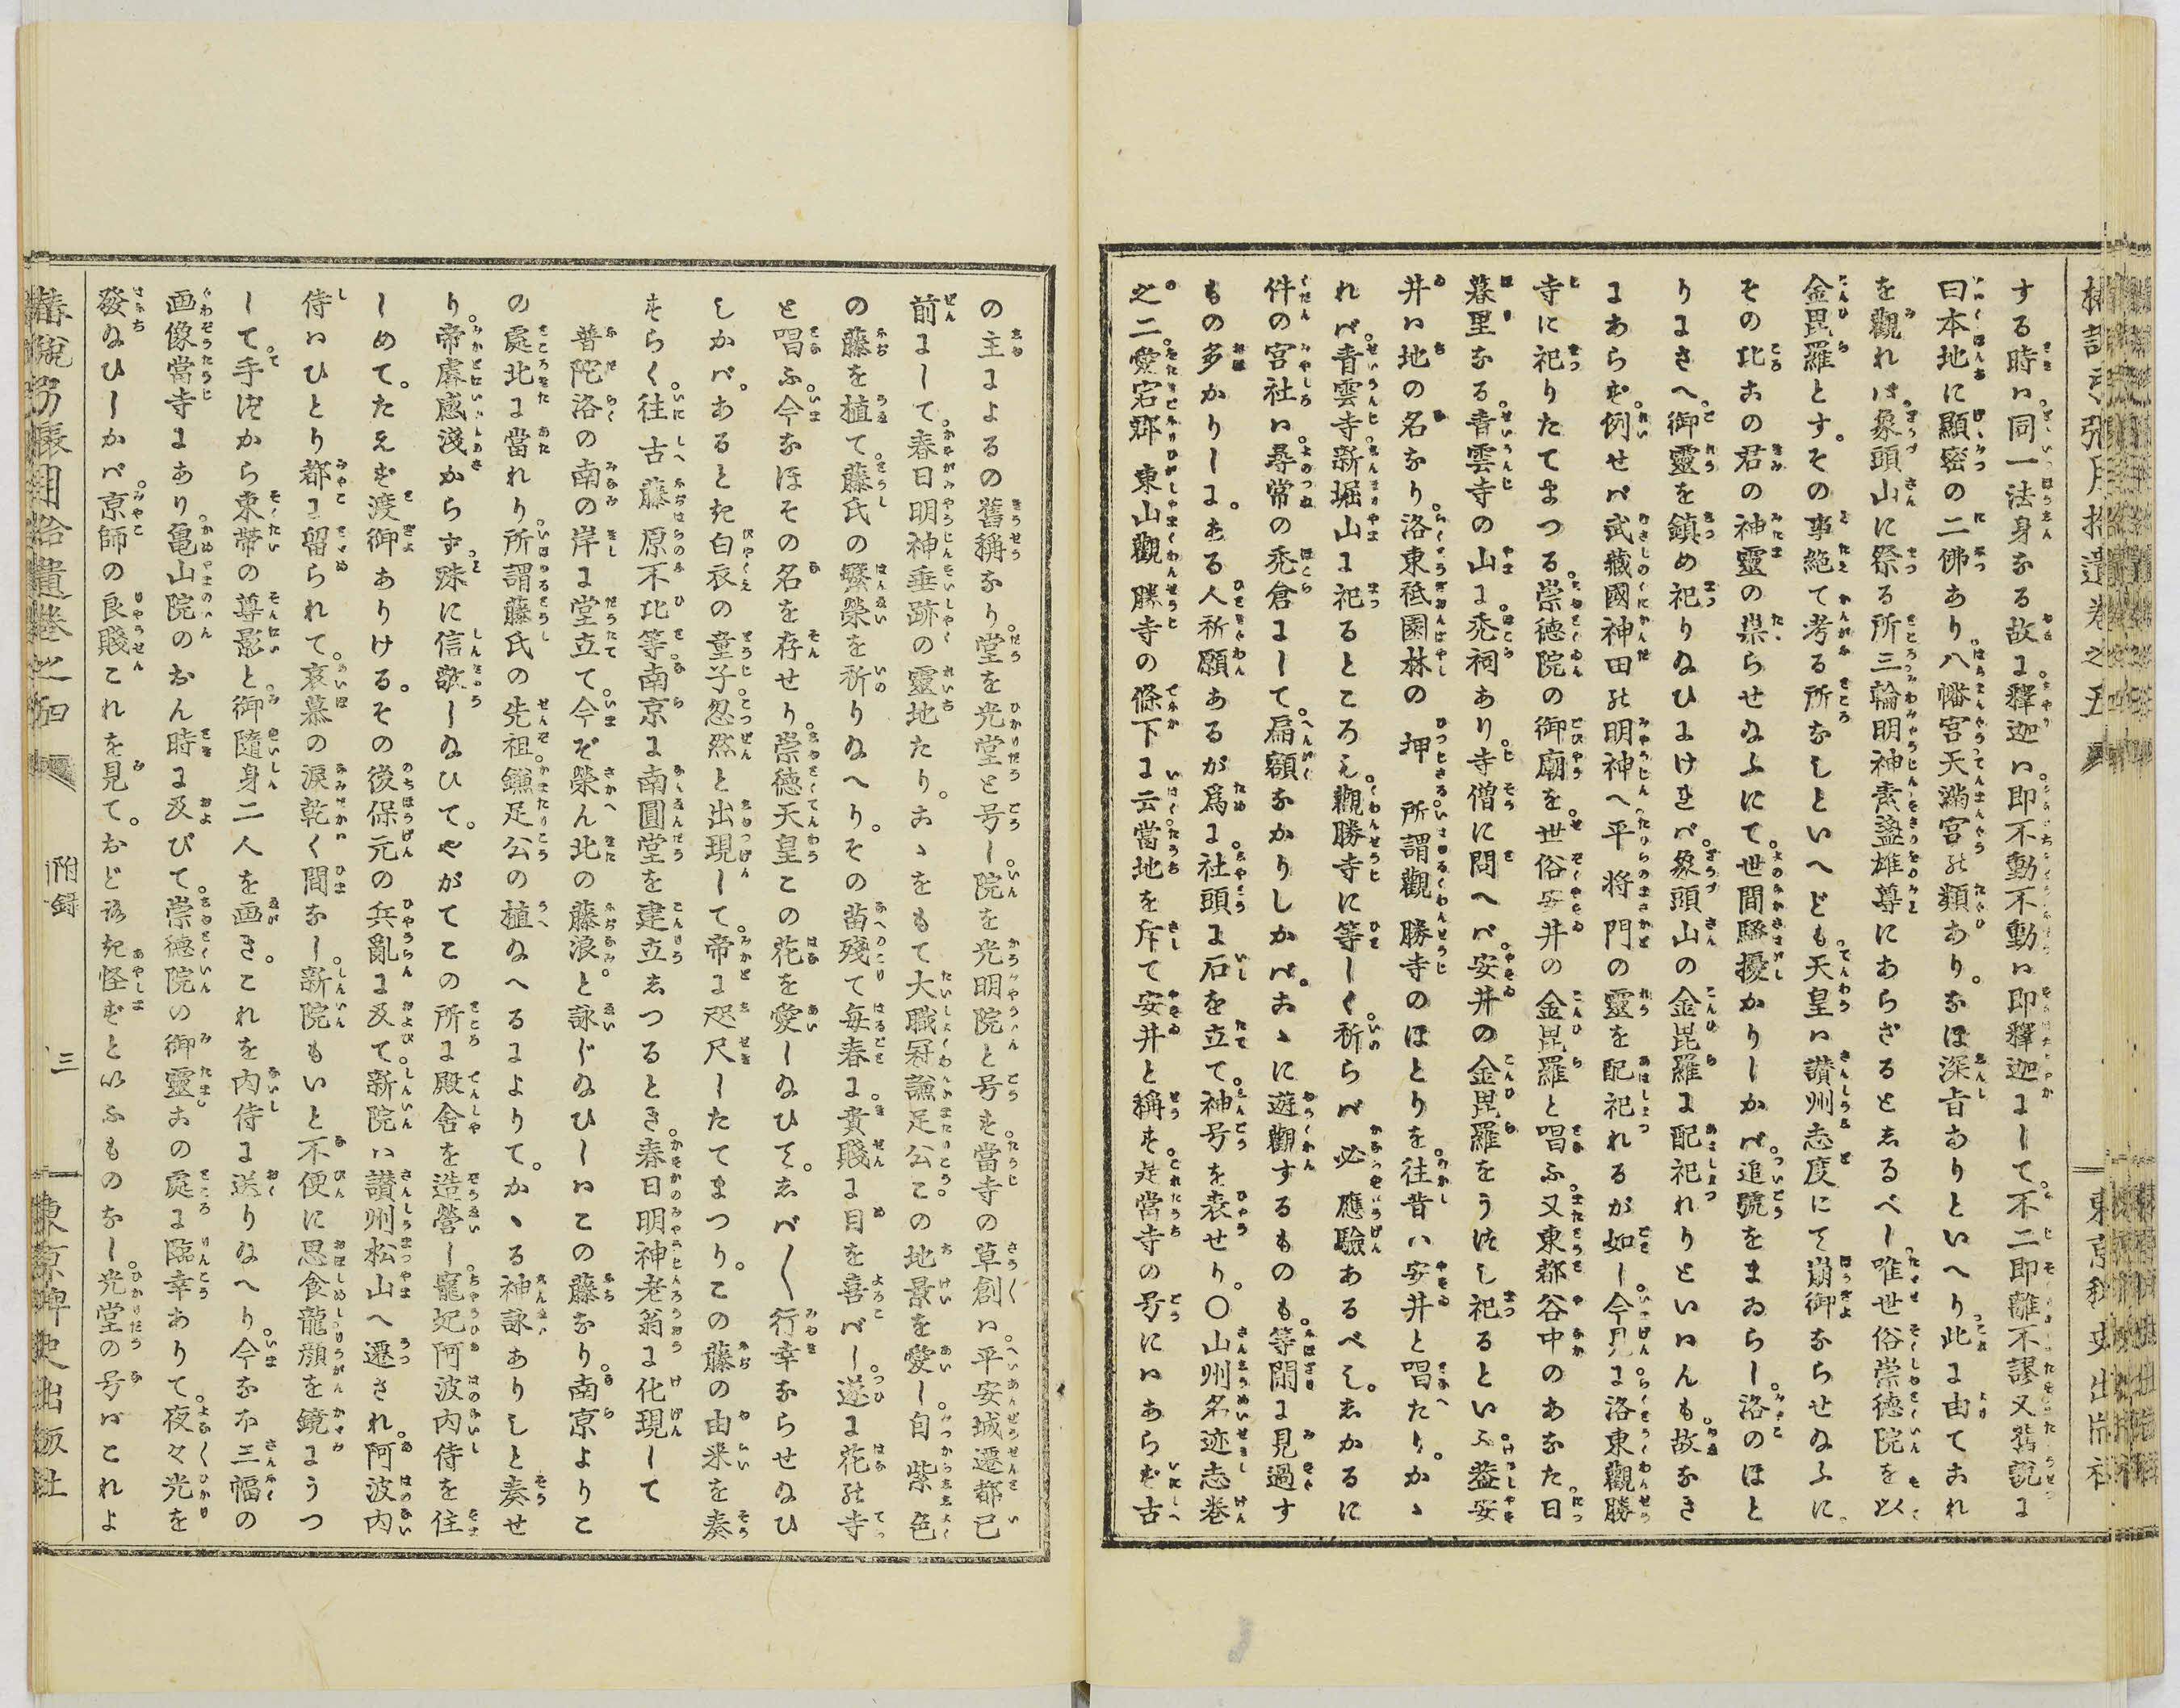 する時ハ同一法身なる故に釋迦ハ即不動不動ハ即釋迦にして不二即離不謬又舊説に
曰本地に顯密の二佛あり八幡宮天滿宮の類あり。なほ深旨ありといへり此に由てこれ
を觀れば象頭山に祭る所三輪明神素盞雄尊にあらざるとしるべし唯世俗崇徳院を以
金毘羅とす。その事絶て考る所なしといへども天皇ハ讃州志度にて崩御ならせ給ふに。
その比この君の神靈の祟らせ給ふにて世間騷擾かりしかバ追號をまゐらし洛のほと
りにさへ御靈を鎮め祀り給ひにけれバ象頭山の金毘羅に配祀れりといハんも故なき
にあらず例せバ武藏國神田の明神へ平將門の靈を配祀れるが如し今見に洛東觀勝
寺に祀りたてまつる崇徳院の御廟を世俗安井の金毘羅と唱ふ又東都谷中のあなた日
暮里なる青雲寺の山に禿祠あり寺僧に問へバ安井の金毘羅をうつし祀るといふ蓋安
井ハ地の名なり洛東祗園林の押所謂觀勝寺のほとりを往昔ハ安井と唱たり。かゝ
れバ青雲寺新堀山に祀るところも觀勝寺に等しく祈らバ必應驗あるべし。しかるに
件の宮社ハ尋常の禿倉にして扁額なかりしかバ。こゝに遊觀するものも等閑に見過す
もの多かりしに。ある人祈願あるが爲に社頭に石を立て神号を表せり。〇山州名迹志卷
之二愛宕郡東山觀勝寺の條下に云當地を斥て安井と稱す是當寺の号にハあらず古
の主によるの舊稱なり堂を光堂と号し院を光明院と号す當寺の草創ハ平安城遷都已
前にして春日明神垂跡の靈地たり。こゝをもて大職冠鎌足公この地景を愛し自紫色
の藤を植て藤氏の繁榮を祈り給へり。その苗殘て毎春に貴賤に目を喜バし遂に花の寺
と唱ふ今なほその名を存せり崇徳天皇この花を愛し給ひて。しバ〱行幸ならせ給ひ
しかバ。あるとき白衣の童子忽然と出現して帝に咫尺したてまつり。この藤の由來を奏
すらく往古藤原不比等南京に南圓堂を建立しつるとき春日明神老翁に化現して
普陀洛の南の岸に堂立て今ぞ榮ん北の藤浪。と詠じ給ひしハこの藤なり南京よりこ
の處北に當れり所謂藤氏の先祖鎌足公の植給へるによりて。かゝる神詠ありしと奏せ
り帝叡感淺からず殊に信敬し給ひて。やがてこの所に殿舍を造營し寵妃阿波内侍を住
しめて。たえず渡御ありける。その後保元の兵亂に及て新院ハ讃州松山へ遷され。阿波内
侍ハひとり都に留られて。哀慕の涙乾く間なし新院もいと不便に思食龍顏を鏡にうつ
して手づから東帶の尊影と御隨身二人を画き。これを内侍に送り給へり今なほ三幅の
画像當寺にあり亀山院のおん時に及びて崇徳院の御靈この處に臨幸ありて夜々光を
發給ひしかバ京師の良賤これを見て。おどろき怪ずといふものなし光堂の号ハこれよ
椿説弓張月拾遺卷之四 附録 三 東京稗史出版社